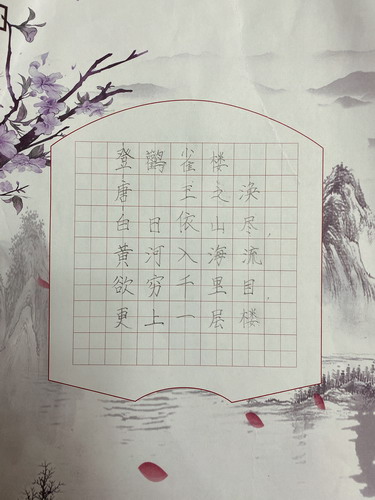 登鹳雀楼
唐 王之涣
白日依山尽，
黄河入海流
欲穷千里目，
更上一层楼